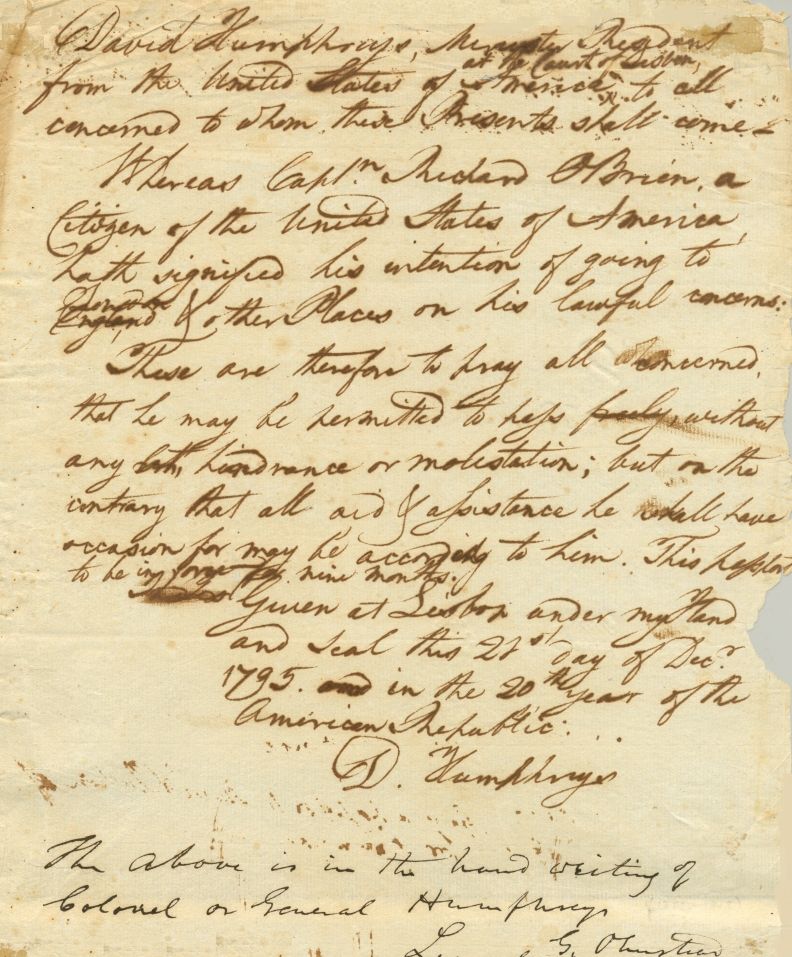 David Humphreys, Minister Resident
at the Court of Lisbon,
from the United States of America, to all
concerned to whom these Presents shall come—
Whereas Captn. Richard OBrien, a
Citizen of the United States of America,
hath signified his intention of going to
London
England & other Places on his lawful concerns:
These are therefore to pray all concerned,
that he may be permitted to pass freely, without
any let, hindrance or molestation; but on the
contrary that all aid & assistance he shall have
occasion for may be according to him. This passport
to be in force for nine months.
Given at Lisbon under my Hand
and seal this 21st day of Decr.
1795. and in the 20th year of the
American Republic.
D. Humphreys
The above is in the hand writing of
Colonel or General Humphreys
G. Olmstead